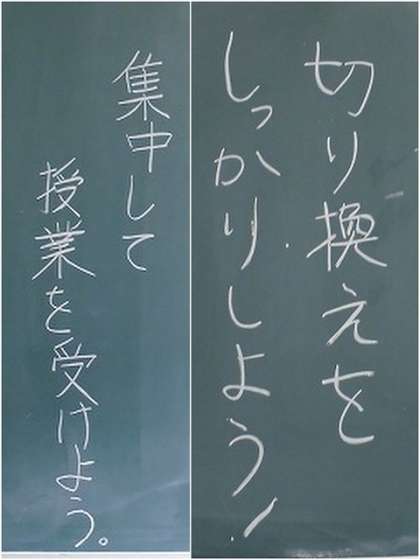 集中して
授業を受けよう。
切り換えを
しっかりしよう!